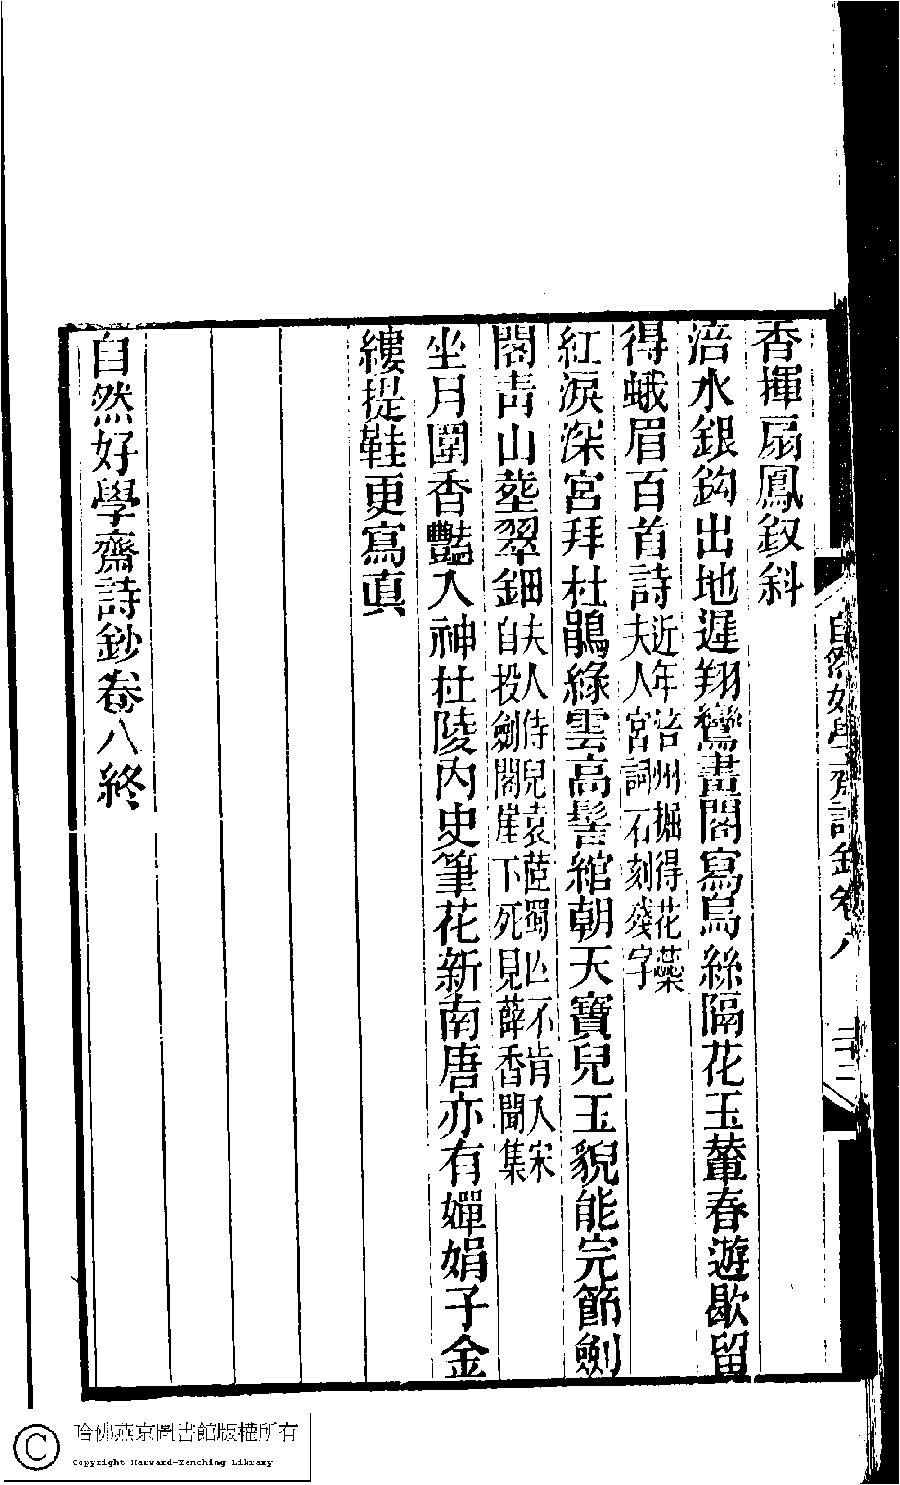 香揮扇鳳釵斜
涪水銀鈎出地遲翔鸞畫閣寫烏絲隔花玉輦春遊歇留
得蛾眉百首詩近年涪州掘得花蘂
夫人宮詞石刻殘字
紅淚深宮拜杜鵑綠雲高髻綰朝天寶兒玉貌能完節劍
閣青山塟翠鈿夫人侍兒袁蒀蜀亾不肯入宋
自投劍閣崖下死見薛香聞集
坐月圍香豔入神杜陵內史筆花新南唐亦有嬋娟子金
縷提鞋更寫眞
自然好學齋詩鈔卷八終
自然好學齋詩鈔卷八
二十二
哈佛燕京圖書館版權所有
Copyright Harvard-Yenching Library